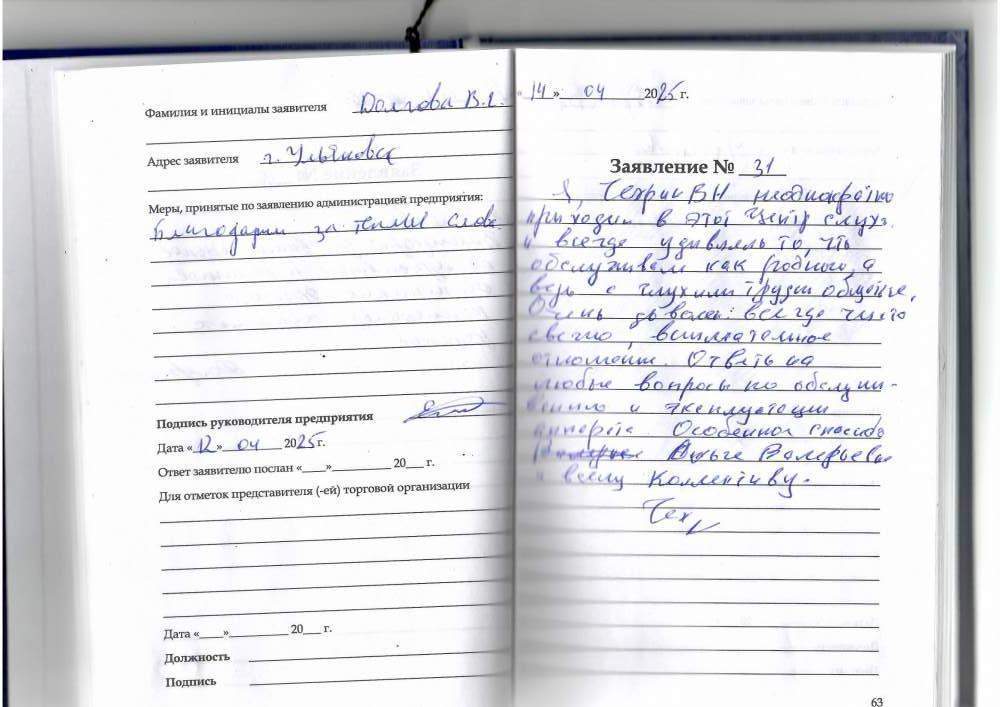 Фамилия и инициалы заявителя Долгова В.Г.
Адрес заявителя г. Ульяновск
Меры, принятые по заявлению администрацией предприятия:
Благодарим за теплые слова.
Подпись руководителя предприятия
Дата «12» 04 2025 г.
Ответ заявителю послан «___»__________ 20___ г.
Для отметок представителя (-ей) торговой организации
Дата «___»__________ 20___ г.
Должность
Подпись
«14» 04 2025 г.
Заявление № 31
Я, ВН неоднократно
приходил в этот Центр слуха
и всегда удивляло то, что
обслуживали как родного, а
ведь с глухими трудно общение.
Очень доволен: всегда чисто
светло, внимательное
отношение. Ответы на
любые вопросы по обслужи-
ванию и эксплуатации
аппарата. Особенное спасибо
Ольге Валерьевне
и всему коллективу.
63